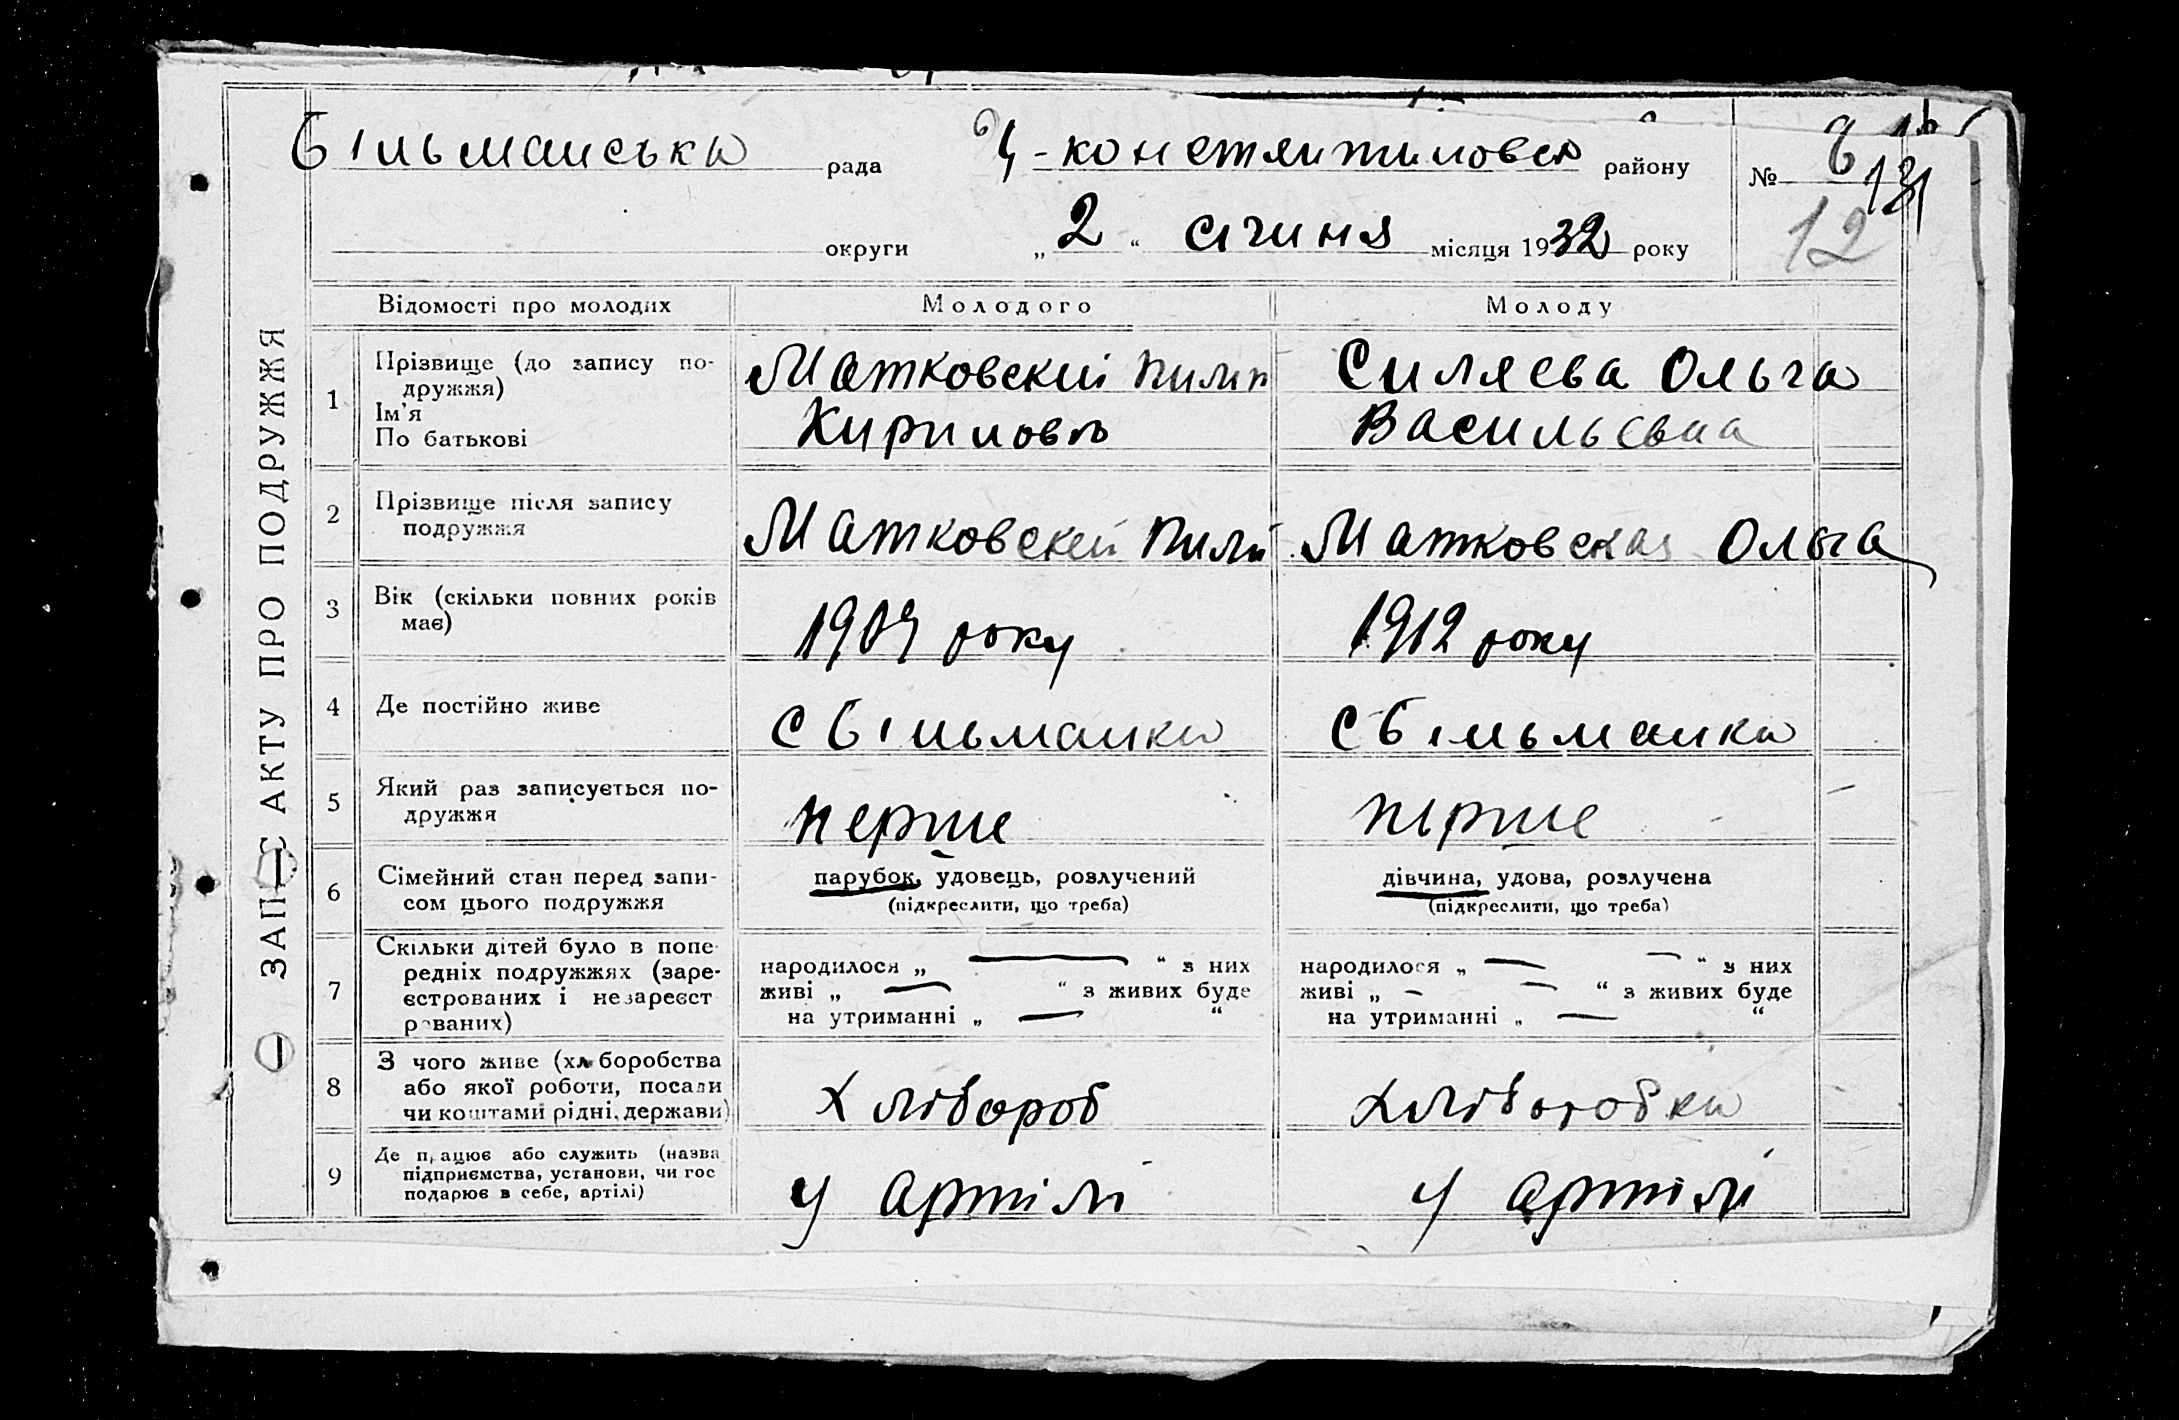 ЗАПИС АКТУ ПРО ПОДРУЖЖЯ
Більманська рада Ц-констянтиновск району № 6
13
12
округи „2“ січиня місяця 1932 року
Відомості про молодих Молодого Молоду
1 Прізвище (до запису по-
дружжя)
Ім'я
По батькові
Матковский Пилип
Кириловъ
Силяєва Ольга
Васильєвна
2 Прізвище після запису
подружжя
Матковский Пили
Матковская Ольга
3 Вік (скільки повних років
має)
1909 року
1912 року
4 Де постійно живе
С Більманка
С Більманка
5 Який раз записується по-
дружжя
перше
перше
6 Сімейний стан перед запи-
сом цього подружжя
парубок, удовець, розлучений
(підкреслити, що треба)
дівчина, удова, розлучена
(підкреслити, що треба)
7 Скільки дітей було в попе-
редніх подружжях (заре-
єстрованих і незареєст
рованих)
народилося „ — “ з них
живі „ — “ з живих буде
на утриманні „ — “
народилося „ — — “ з них
живі „ — — “ з живих буде
на утриманні „ — “
8 З чого живе (хліборобства
або якої роботи, посади
чи коштами рідні, держави)
Хлібороб
хліборобка
9 Де працює або служить (назва
підприємства, установи, чи гос
подарює в себе, артілі)
у артілі
у артілі